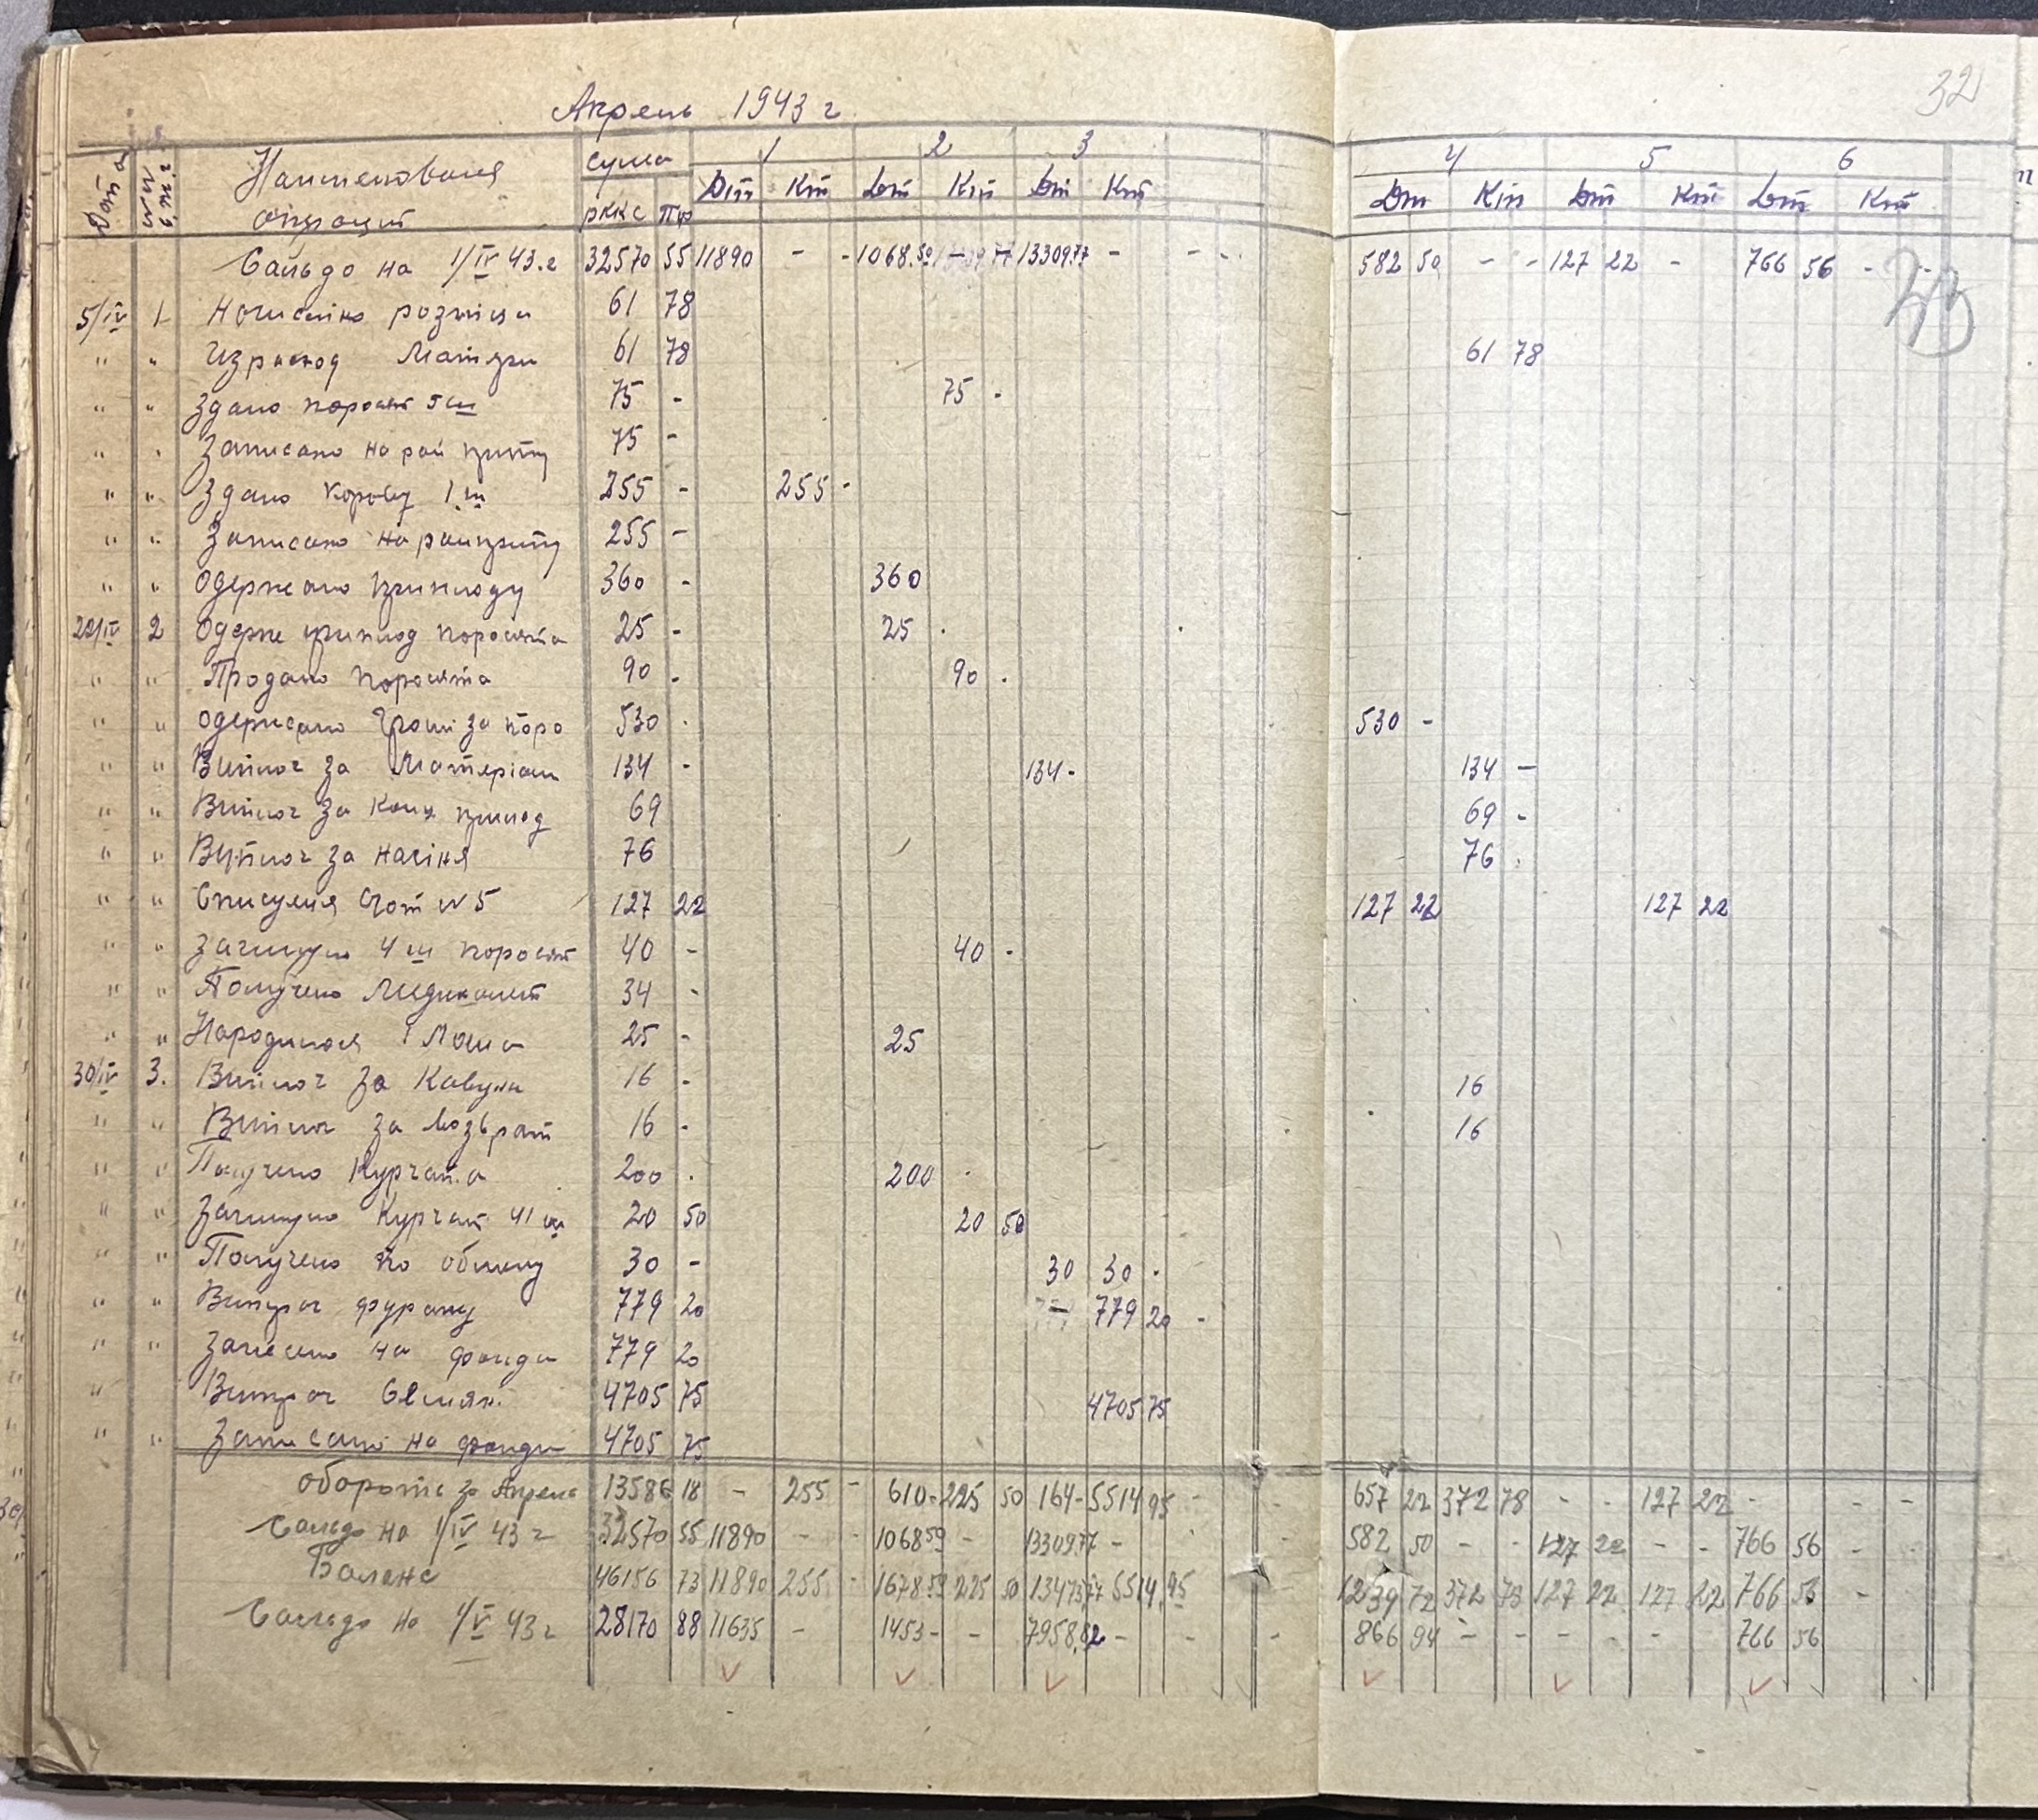 32
Апрель 1943 г
Дата
Наименования операций
сумма
1 2 3 4 5 6
рккс пф Дт Кт Дт Кт Дт Кт Дт Кт Дт Кт Дт Кт
Сальдо на 1/IV 43.г 32570 55 11890 - - 1068.59 13309.77 - - - 582 50 - - 127 22 - 766 56 - -
5/IV 1 61 78
" " 61 78 61 78
" " Здано поросят 5 ш 75 - 75 -
" " Записано на рай 75 -
" " Здано корову 1 ш 255 - 255 -
" " Записано на рай 255 -
" " Одержано приплоду 360 - 360
22/IV 2 Одерже приплод поросята 25 - 25 -
" " Продано поросята 90 - 90 -
" " одержано гроши за поро 530 - 530 -
" " Виплач за Материали 134 - 134 - 134 -
" " Виплач за 69 69 -
" " Виплач за насіня 76 76 -
" " Списуеия Счот N 5 127 22 127 22 127 22
" " Загинуло 4 ш поросят 40 - 40 -
" " Получено Медикамент 34 -
" " Народилося 1 Лоша 25 - 25
30/IV 3. Виплач за Кавуни 16 - 16
" " Виплач за возврат 16 - 16
" " Получено Курчат.а 200 - 200 -
" " Загинуло Курчат 41 ш 20 50 20 50
" " Получено по обмену 30 - 30 30 -
" " Витрач фуражу 779 20 779 20 -
" " Занесено на фонди 779 20
" Витрач Семян. 4705 75 4705 75
" " Записано на фонди 4705 75
обороти за Апрель 13586 18 - 255 - 610 - 225 50 164 - 5514 95 - - 657 22 372 78 - - 127 22 - - -
Сальдо на 1/IV 43 г 32570 55 11890 - - 1068 59 - 13309.77 - - 582 50 - - 127 22 - - 766 56 - -
Баланс 46156 73 11890 255 - 1678 59 225 50 13473 77 5514.95 1239 72 372 78 127 22 127 22 766 56 -
Сальдо на 1/V 43 г 28170 88 11635 - 1453 - - 7958.82 - - - 866 94 - - - - - 766 56